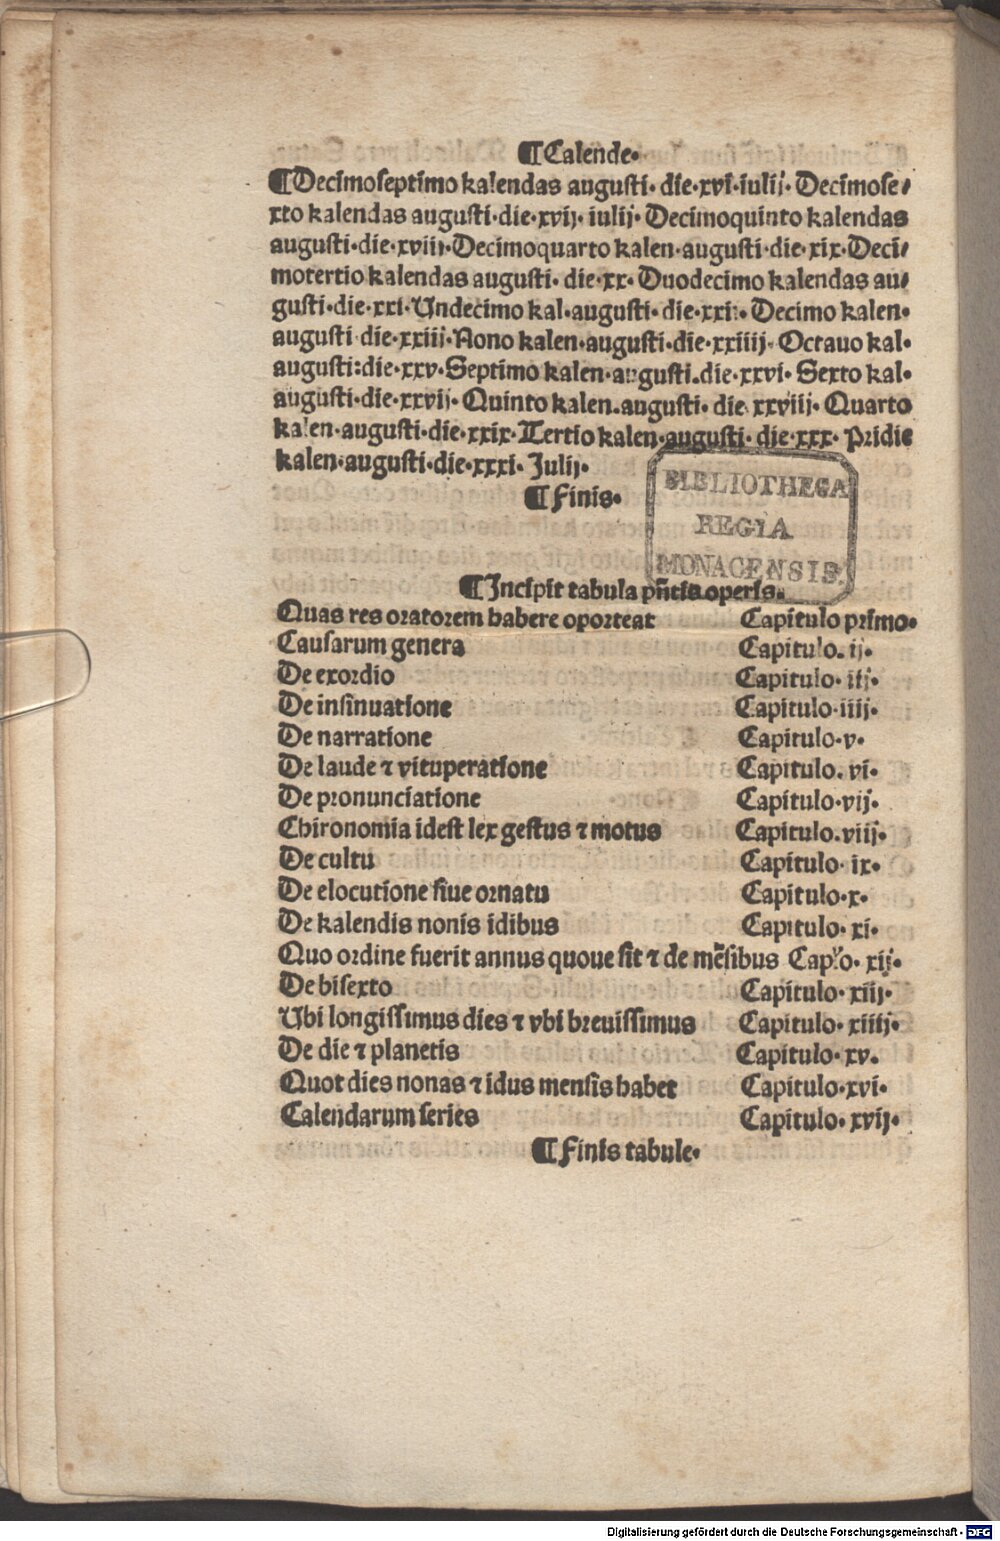 ¶Calende·
¶Decimoseptimo kalendas augusti· die·xvi·iulij· Decimose/
xto kalendas augusti·die·xvij· iulij· Decimoquinto kalendas
augusti·die·xviij·Decimoquarto kalen·augusti·die·xix·Deci/
motertio kalendas augusti· die·xx· Duodecimo kalendas au/
gusti·die·xxi·Undecimo kal·augusti·die·xxij· Decimo kalen·
augusti die·xxiij·Nono kalen·augusti·die·xxiiij· Octauo kal·
augusti:die·xxv·Septimo kalen·augusti.die·xxvi· Sexto kal·
augusti·die·xxvij· Quinto kalen.augusti· die xxviij· Quarto
kalen·augusti·die·xxix·Tertio kalen·augusti· die·xxx· Pridie
kalen·augusti·die·xxxi· Julij·
¶Finis·
BIBLIOTHECA
REGIA
MONACENSIS.
¶Incipit tabula pñtis operis.
Quas res oratorem habere oporteat Capitulo primo·
Causarum genera Capitulo. ij·
De exordio Capitulo· iij·
De insinuatione Capitulo·iiij·
De narratione Capitulo·v·
De laude ⁊ vituperatione Capitulo. vi·
De pronunciatione Capitulo·vij·
Chironomia idest lex gestus ⁊ motus Capitulo.viij·
De cultu Capitulo· ix·
De elocutione siue ornatu Capitulo·x·
De kalendis nonis idibus Capitulo· xi·
Quo ordine fuerit annus quoue sit ⁊ de mẽsibus Capło· xij·
De bisexto Capitulo· xiij·
Ubi longissimus dies ⁊ vbi breuissimus Capitulo· xiiij·
De die ⁊ planetis Capitulo· xv.
Quot dies nonas ⁊ idus mensis habet Capitulo·xvi·
Calendarum series Capitulo· xvij·
¶Finis tabule·
Digitalisierung gefördert durch die Deutsche Forschungsgemeinschaft - DFG